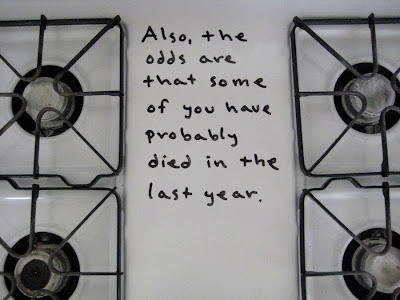 Also, the
odds are
that some
of you have
probably
died in the
last year.